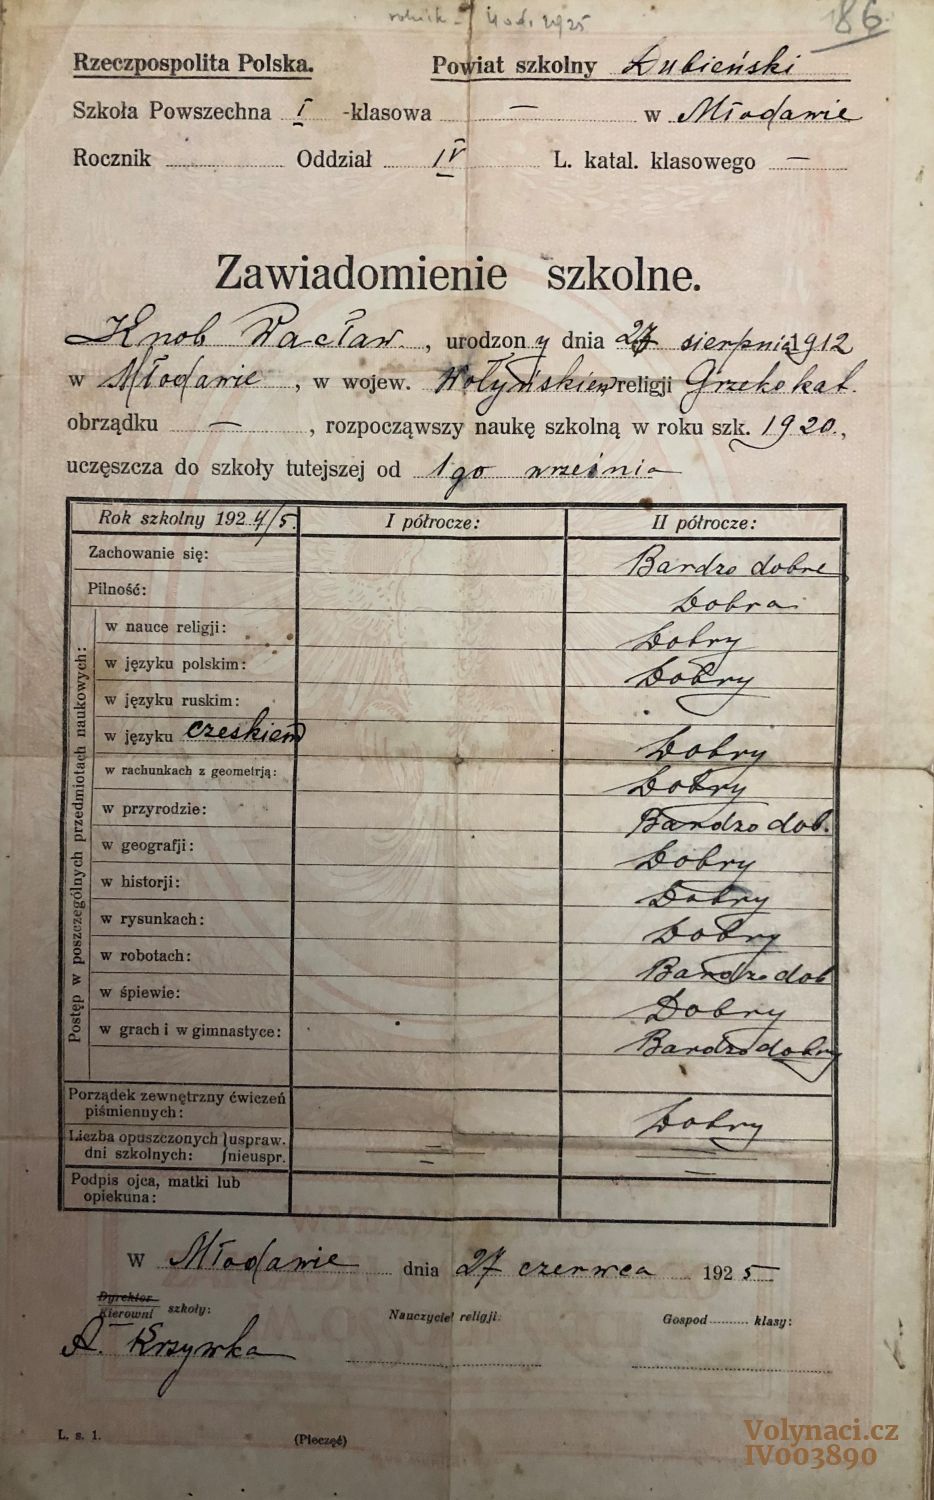 186.
Rzeczpospolita Polska. Powiat szkolny Dubieński
Szkoła Powszechna I -klasowa — w Młodawie
Rocznik Oddział IV L. katal. klasowego —
Zawiadomienie szkolne.
Knob Wacław, urodzony dnia 27 sierpnia 1912
w Młodawie, w wojew. Wołyńskiem religji Grzeko kat.
obrządku —, rozpocząwszy naukę szkolną w roku szk. 1920.,
uczęszcza do szkoły tutejszej od 1go września
Rok szkolny 1924/5. I półrocze: II półrocze:
Zachowanie się: Bardzo dobre
Pilność: Dobra
Postęp w poszczególnych przedmiotach naukowych:
w nauce religji: Dobry
w języku polskim: Dobry
w języku ruskim:
w języku czeskiem Dobry
w rachunkach z geometrją: Dobry
w przyrodzie: Bardzo dob.
w geografji: Dobry
w historji: Dobry
w rysunkach: Dobry
w robotach: Bardzo dob
w śpiewie: Dobry
w grach i w gimnastyce: Bardzo dobry
Porządek zewnętrzny ćwiczeń
piśmiennych: Dobry
Liczba opuszczonych } uspraw.
dni szkolnych: } nieuspr.
Podpis ojca, matki lub
opiekuna:
W Młodawie dnia 27 czerwca 1925
Dyrektor
Kierowni szkoły: Nauczyciel religji: Gospod klasy:
A. Krzywka
L. s. 1. (Pieczęć)
Volynaci.cz
IV003890